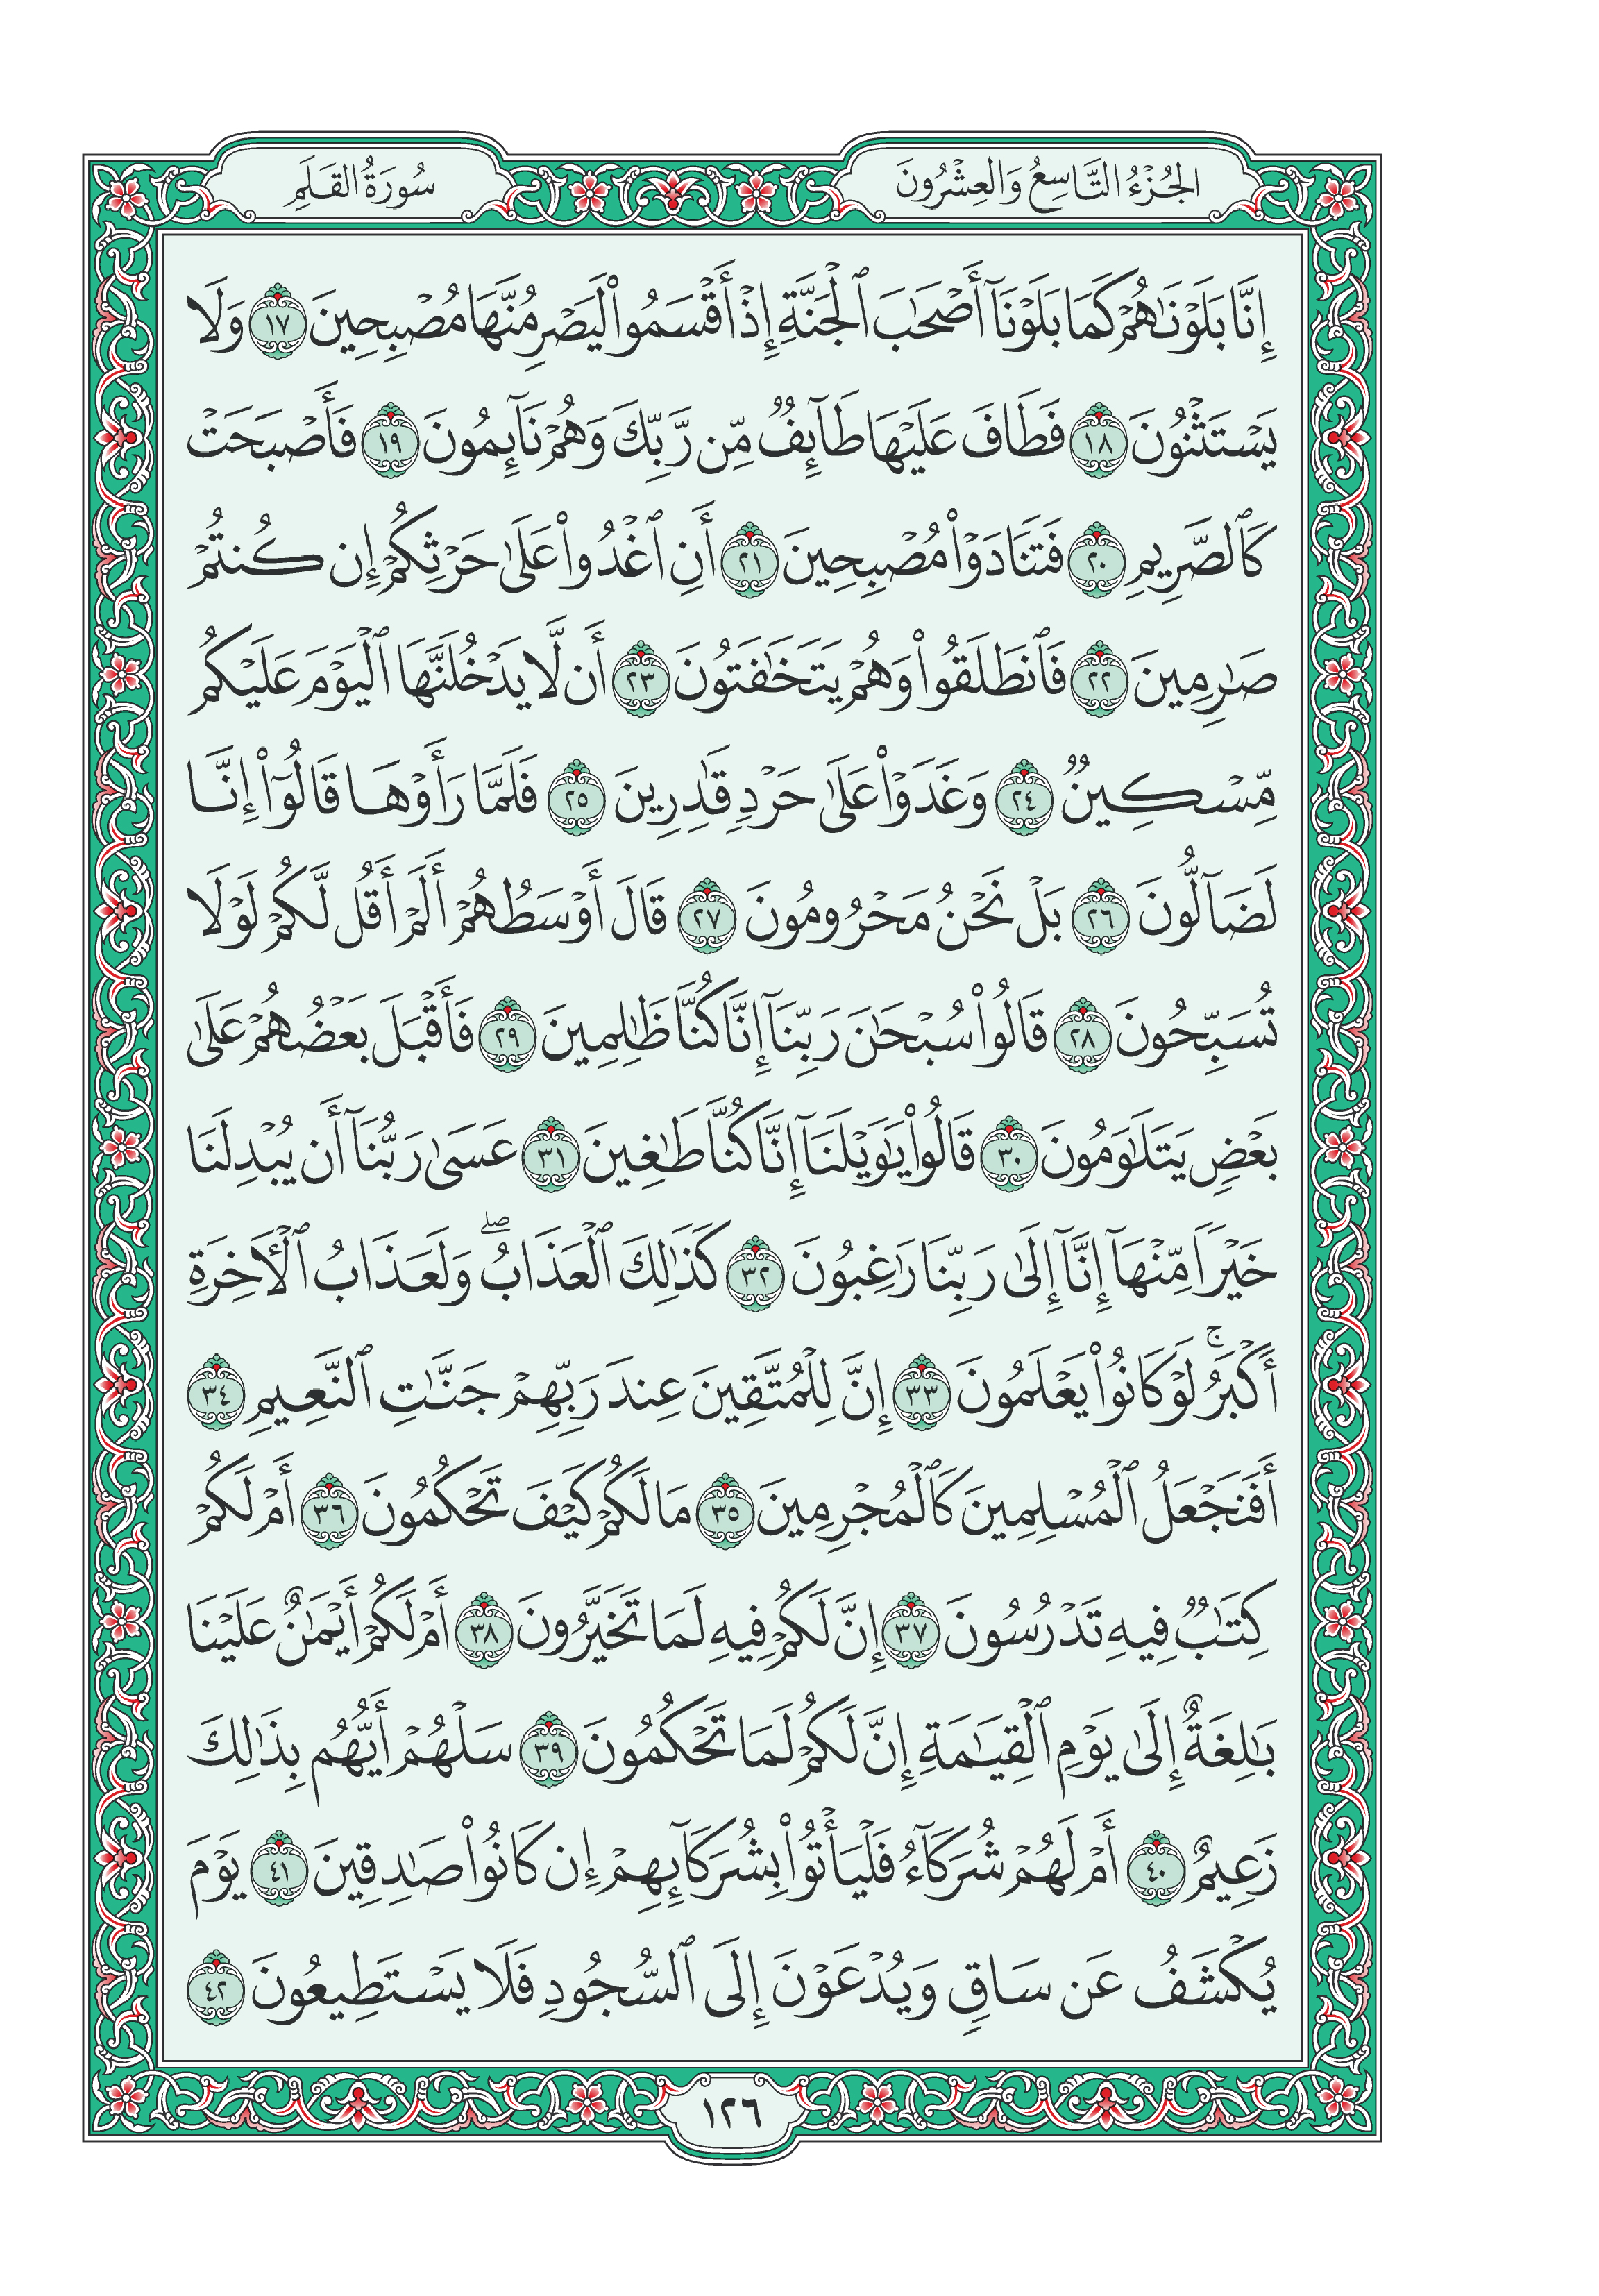 الجُزْءُ التَّاسِعُ وَالعِشْرُونَ
سُورَةُ القَلَمِ
إِنَّا بَلَوْنَٰهُمْ كَمَا بَلَوْنَآ أَصْحَٰبَ ٱلْجَنَّةِ إِذْ أَقْسَمُوا۟ لَيَصْرِمُنَّهَا مُصْبِحِينَ ١٧ وَلَا
يَسْتَثْنُونَ ١٨ فَطَافَ عَلَيْهَا طَآئِفٌ مِّن رَّبِّكَ وَهُمْ نَآئِمُونَ ١٩ فَأَصْبَحَتْ
كَٱلصَّرِيمِ ٢٠ فَتَنَادَوْا۟ مُصْبِحِينَ ٢١ أَنِ ٱغْدُوا۟ عَلَىٰ حَرْثِكُمْ إِن كُنتُمْ
صَٰرِمِينَ ٢٢ فَٱنطَلَقُوا۟ وَهُمْ يَتَخَٰفَتُونَ ٢٣ أَن لَّا يَدْخُلَنَّهَا ٱلْيَوْمَ عَلَيْكُم
مِّسْكِينٌ ٢٤ وَغَدَوْا۟ عَلَىٰ حَرْدٍ قَٰدِرِينَ ٢٥ فَلَمَّا رَأَوْهَا قَالُوٓا۟ إِنَّا
لَضَآلُّونَ ٢٦ بَلْ نَحْنُ مَحْرُومُونَ ٢٧ قَالَ أَوْسَطُهُمْ أَلَمْ أَقُل لَّكُمْ لَوْلَا
تُسَبِّحُونَ ٢٨ قَالُوا۟ سُبْحَٰنَ رَبِّنَآ إِنَّا كُنَّا ظَٰلِمِينَ ٢٩ فَأَقْبَلَ بَعْضُهُمْ عَلَىٰ
بَعْضٍ يَتَلَٰوَمُونَ ٣٠ قَالُوا۟ يَٰوَيْلَنَآ إِنَّا كُنَّا طَٰغِينَ ٣١ عَسَىٰ رَبُّنَآ أَن يُبْدِلَنَا
خَيْرًا مِّنْهَآ إِنَّآ إِلَىٰ رَبِّنَا رَٰغِبُونَ ٣٢ كَذَٰلِكَ ٱلْعَذَابُ ۖ وَلَعَذَابُ ٱلْءَاخِرَةِ
أَكْبَرُ ۚ لَوْ كَانُوا۟ يَعْلَمُونَ ٣٣ إِنَّ لِلْمُتَّقِينَ عِندَ رَبِّهِمْ جَنَّٰتِ ٱلنَّعِيمِ ٣٤
أَفَنَجْعَلُ ٱلْمُسْلِمِينَ كَٱلْمُجْرِمِينَ ٣٥ مَا لَكُمْ كَيْفَ تَحْكُمُونَ ٣٦ أَمْ لَكُمْ
كِتَٰبٌ فِيهِ تَدْرُسُونَ ٣٧ إِنَّ لَكُمْ فِيهِ لَمَا تَخَيَّرُونَ ٣٨ أَمْ لَكُمْ أَيْمَٰنٌ عَلَيْنَا
بَٰلِغَةٌ إِلَىٰ يَوْمِ ٱلْقِيَٰمَةِ إِنَّ لَكُمْ لَمَا تَحْكُمُونَ ٣٩ سَلْهُمْ أَيُّهُم بِذَٰلِكَ
زَعِيمٌ ٤٠ أَمْ لَهُمْ شُرَكَآءُ فَلْيَأْتُوا۟ بِشُرَكَآئِهِمْ إِن كَانُوا۟ صَٰدِقِينَ ٤١ يَوْمَ
يُكْشَفُ عَن سَاقٍ وَيُدْعَوْنَ إِلَى ٱلسُّجُودِ فَلَا يَسْتَطِيعُونَ ٤٢
١٢٦